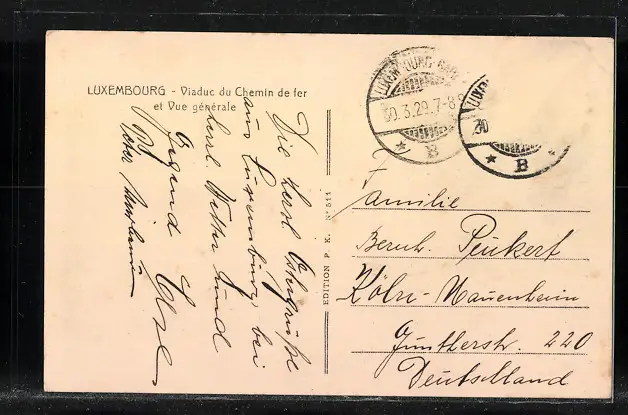 LUXEMBOURG - Viaduc du Chemin de fer
et Vue générale
Die herzl. Ostergrüße
aus Luxemburg bei
herl. Wetter und
Jugend
EDITION P. K. N° 511
LUXEMBOURG-GARE
30.3.29.7-8
* B
LUX
30
* B *
Familie
Bernh. Peukert
Köln-Mauenheim
Guntherstr. 220
Deutschland